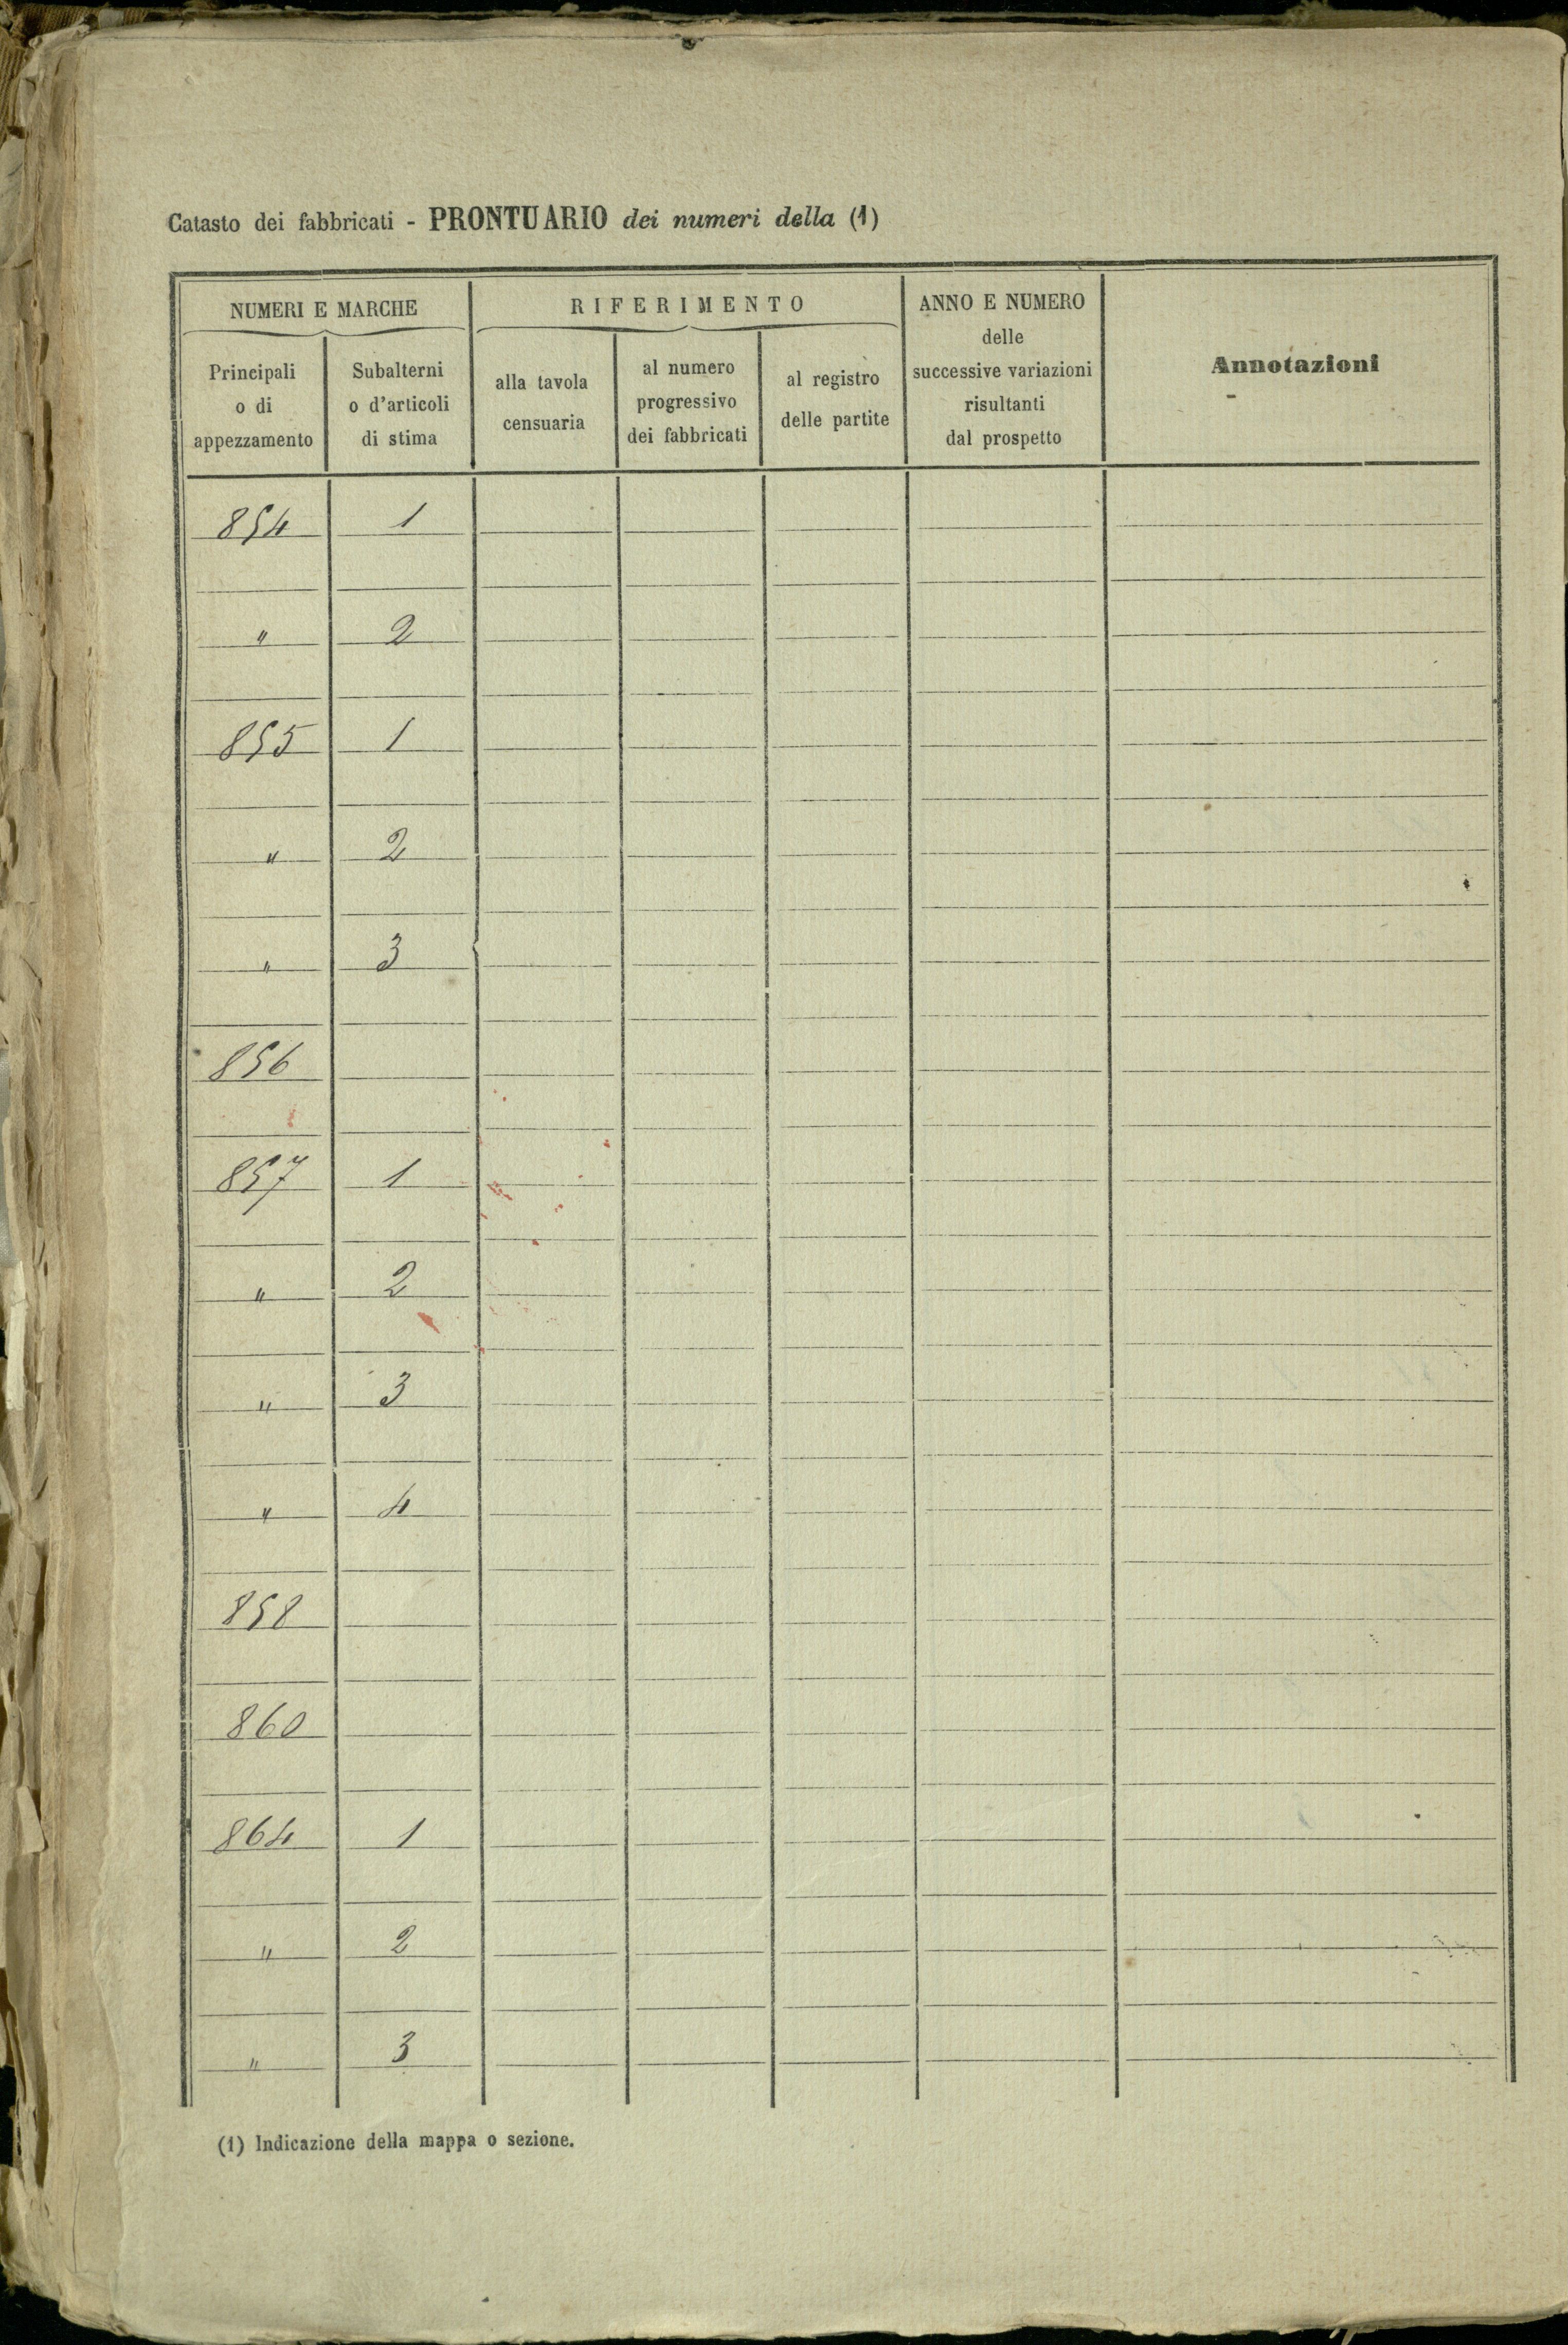 Catasto dei fabbricati - PRONTUARIO dei numeri della (1)
NUMERI E MARCHE
RIFERIMENTO
ANNO E NUMERO
delle
successive variazioni
risultanti
dal prospetto
Annotazioni
Principali
o di
appezzamento
Subalterni
o d'articoli
di stima
alla tavola
censuaria
al numero
progressivo
dei fabbricati
al registro
delle partite
854 1
" 2
855 1
" 2
" 3
856
857 1
" 2
" 3
" 4
858
860
864 1
" 2
" 3
(1) Indicazione della mappa o sezione.